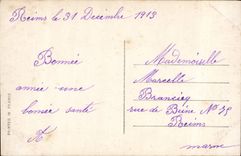 Reims le 31 Decembre 1913
Bonnée
année une
bonnée santé
Mademoiselle
Marcelle
rue de Beine No 75
Reims
marne